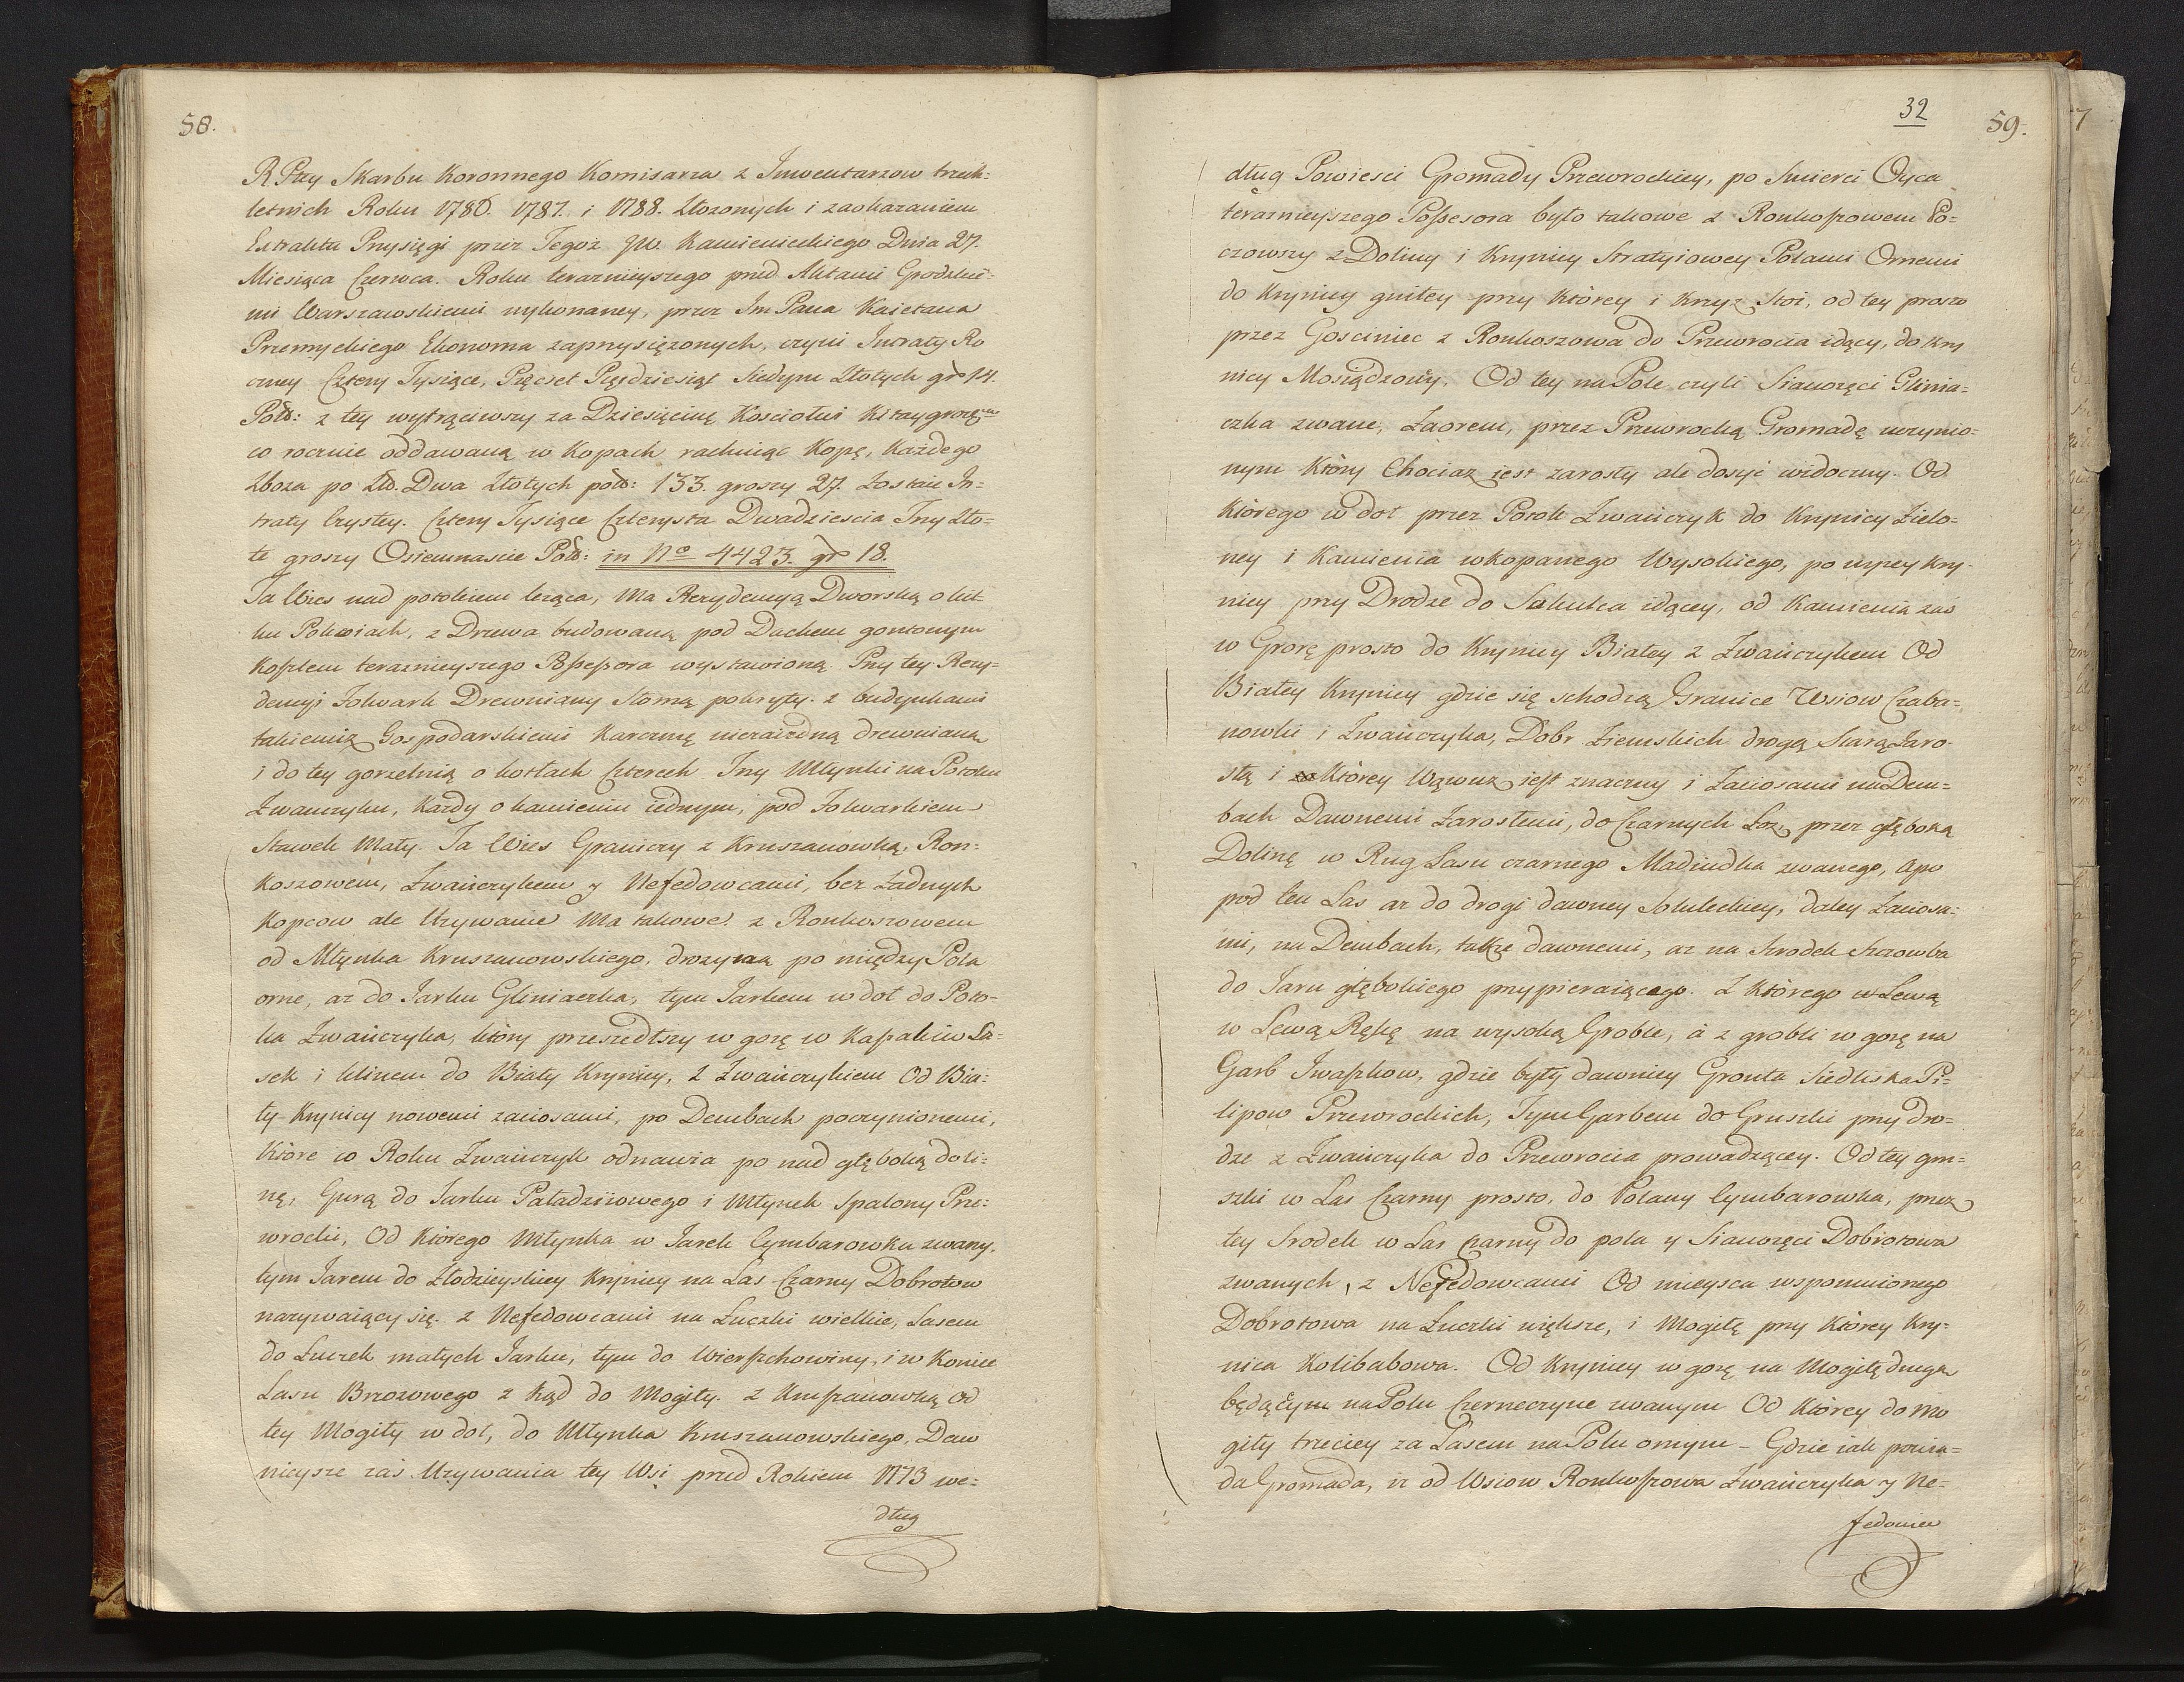 58.
R. Pttey Skarbu Koronnego Komisarza z Inwentarzow trzech=
letnich Roku 1786. 1787. i 1788. złozonych i zaokazaniem
Extraktu Przysięgi przez Tegoz JW. Kamienieckiego Dnia 27.
Miesiąca Czerwca. Roku terazniejszego przed Aktami Grodzkie=
mi Warszawskiemi wykonaney, przez Im Pana Kaietana
Przemyckiego Ekonoma zaprzysięzonych, czyni Intraty Ro
czney Cztery Tysiące, Pięcset Pięędziesiąt Siedym Złotych gr 14.
Polb: z tey wytrąciwszy za Dziesięcinę Kosciołui Kitaygrodzm
co rocznie oddawaną w Kopach rachuiąc Kopę, Każdego
zboza po Zlb. Dwa Złotych polb: 133. groszy 27. Zostaie In=
traty Czystey. Cztery Tysiące Czterysta Dwadziescia Trzy Zło=
te groszy Osiemnascie Polb: in No 4423. gr 18.
Ta Wies nad potokiem leząca, Ma Rezydencyą Dworską o kil=
ku Pokoiach, z Drzewa budowaną pod Dachem gontowym
Kosztem terazniejszego Possessora wystawioną. Przy tey Rezy=
dencyi Folwark Drewniany Słomą pokryty. z budynkami
takiemiz Gospodarskiemi Karczmę niezaiezdną drewnianą
i do tey gorzelnią o kotłach Czterech Trzy Młynki na Potoku
Zwanczyku, Kazdy o kamieniu iednym, pod Folwarkiem
Stawek Mały. Ta Wies Graniczy z Kruszanowką, Ron=
koszowem, Zwanczykiem y Nefedowcami, bez zadnych
Kopcow ale Uzywanie Ma takowe. z Ronkoszowem
od Młynka Kruszanowskiego, drozyną po między Pola
orne, az do Jarku Gliniaczka, tym Jarkiem w doł do Poto=
ka Zwanczyka, ktory przeszedłszy w gorę w Kaszakiw La=
sek i klinem do Białły Krynicy, z Zwanczykiem Od Bia=
ły Krynicy nowemi zaciosami, po Dembach poczynionemi,
Ktore co Roku Zwanczyk odnawia po nad głęboką doli=
nę, Gurą do Jarku Paładziiowego i Młynek Spalony Prze=
wrocki, Od Ktorego Młynka w Jarek Cymbarowka zwany.
tym Jarem do Złodzieyskiey Krynicy na Las Czarny Dobrotow
nazywaiący się. z Nefedowcami na Łuczki wielkie, Lasem
do Łuczek małych Jarku, tym do Wierszchowiny, i w Koniec
Lasu Brzozowego z kąd do Mogiły. z Kruszanowką Od
tey Mogiły w doł, do Młynka Kruszanowskiego, Daw
nieysze zaś Uzywania tey Wsi przed Rokiem 1773 we=
dług
32
59.
dług Powiesci Gromady Przewrockiey, po Smierci Oyca
terazniejszego Possesora było takowe z Ronkoszowem Po=
czowszy z Doliny i Krynicy Stratyiowey Polami Ornemi
do Krynicy gniłey przy Ktorey i Krzyz Stoi, od tey prosto
przez Gosciniec z Ronkoszowa do Przewrocia idący, do Kry
nicy Mosiądzowy. Od tey na Pole czyli Sianozęci Glinia=
czka zwane, Zaorem, przez Przewrocką Gromadę uczynio=
nym Ktory Chociaz iest zarosły ale dosyć widoczny. Od
Ktorego w doł przez Potok Zwanczyk do Krynicy Zielo=
ney i Kamienia wkopanego Wysokiego, po wyzey Kry=
nicy przy Drodze do Sokulca idącey, od Kamienia zaś
w Gorę prosto do Krynicy Białey z Zwanczykiem Od
Białey Krynicy gdzie się schodzą Granice Wsiow Czaba=
nowki i Zwanczyka, Dobr Ziemskich drogą Starą Zaro=
słą i Ktorey Wąwuz iest znaczny i Zaciosami na Dem=
bach Dawnemi Zarosłemi, do Czarnych Łoz, przez głęboką
Dolinę w Rug Lasu czarnego Madziudka zwanego, A po
pod ten Las az do drogi dawney Sokuleckiey, daley Zaciosa=
mi, na Dembach, także dawnemi, az na Srodek Szczowba
do Jaru głębokiego przypieraiącego. Z Ktorego w Lewą
w Lewą Rękę na wysoką Groble, à z grobli w gorę na
Garb Iwaszkow, gdzie były dawniey Gronta Siedliska Pi=
lipow Przewrockich, Tym Garbem do Gruszki przy dro=
dze z Zwanczyka do Przewrocia prowadzącey. Od tey gru=
szki w Las Czarny prosto, do Polany Cymbarowka, przez
tey Srodek w Las Czarny do pola y Sianozęci Dobrotowa
zwanych, z Nefedowcami Od mieysca wspomnionego
Dobrotowa na Łuczki większe, i Mogiłę przy Ktorey Kry=
nica Kolibabowa. Od Krynicy w gorę na Mogiłę drugą
będącym na Polu Czerneczyne zwanym Od Ktorey do Mo
giły trzeciey za Lasem na Polu ornym - Gdzie iak powia=
da Gromada, iz od Wsiow Ronkoszowa Zwanczyka y Ne=
fedowiec